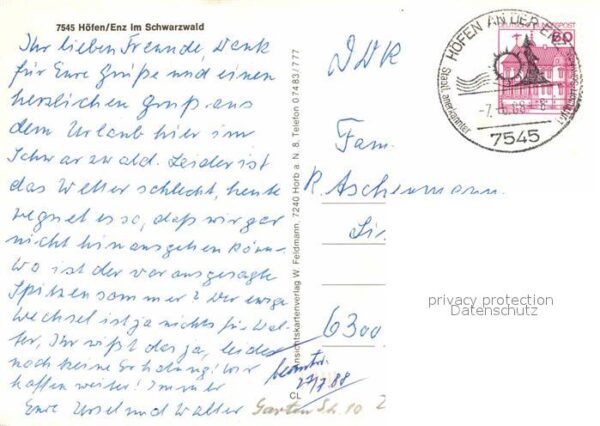 7545 Höfen/Enz im Schwarzwald
Ihr lieben Freunde, Dank
für Eure Grüße und einen
herzlichen Gruß aus
dem Urlaub hier im
Schwarzwald. Leider ist
das Wetter schlecht, heute
regnet es so, daß wir gar
nicht hinausgehen könn-
Wo ist der vorausgesagte
Spitzensommer? Der ewige
Wechsel ist ja nichts für Wal-
ter, Ihr wißt das ja, leider
noch keine Erholung! Wir
hoffen weiter! Immer
Eure Ursel und Walter
Ansichtskartenverlag W. Feldmann, 7240 Horb a. N. 8, Telefon 07483/777
CL
HÖFEN AN DER ENZ
Staatl. anerkannter
7545
60
DDR
Fam.
R. Aschenmann
6300
beantw.
27/7 88
Gartenstr. 10
privacy protection
Datenschutz